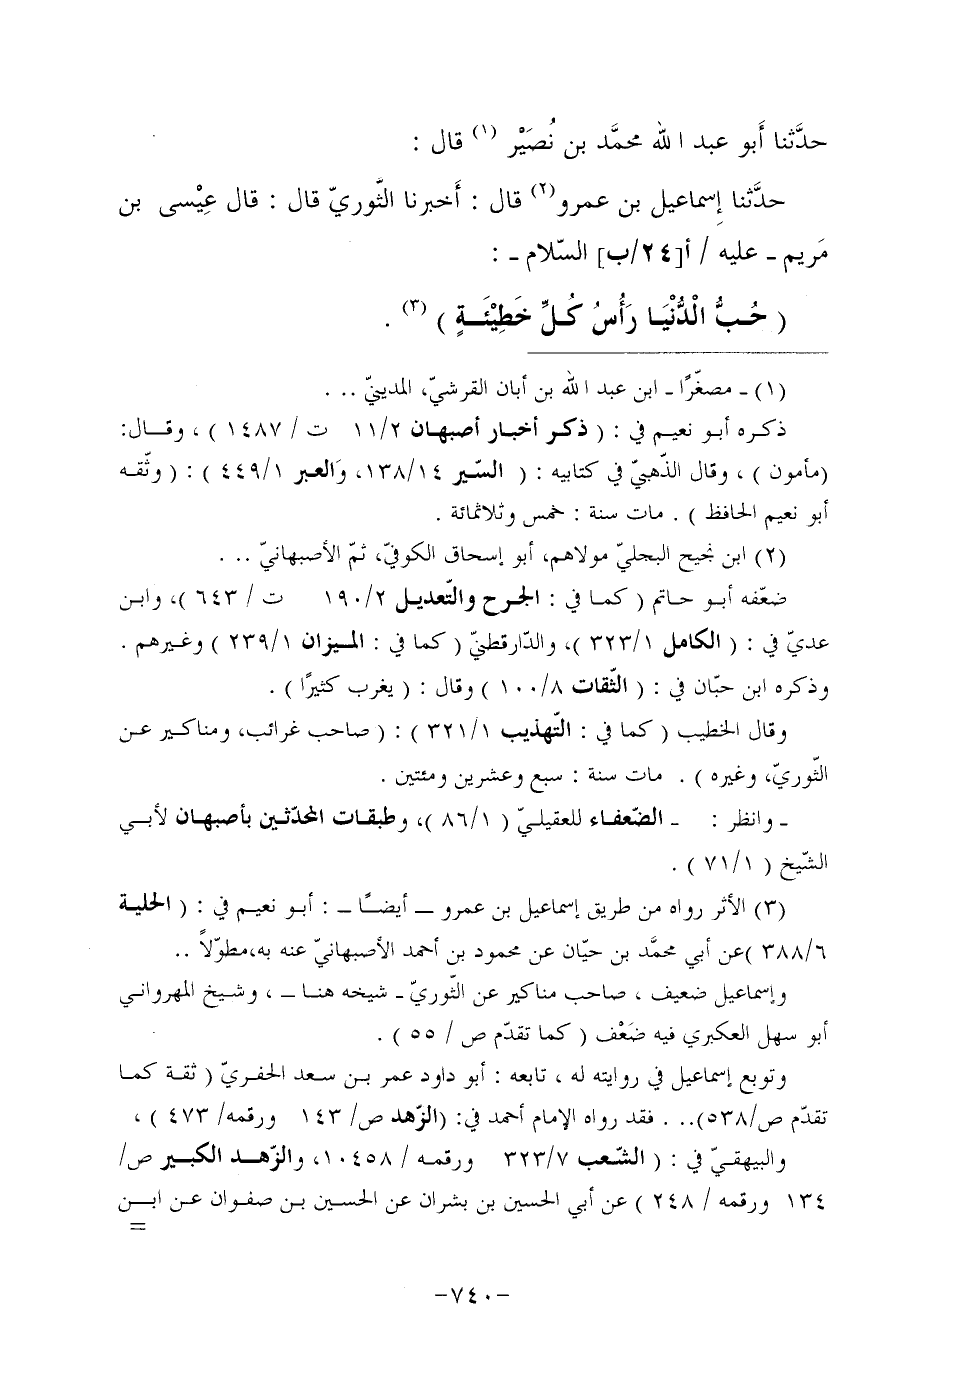 حدَّثنا أَبو عبد الله محمَّد بن نُصَيْر (١) قال :
حدَّثنا إسماعيل بن عمرو(٢) قال : أَخبرنا الثَّوريّ قال : قال عِيْسى بن
مَريم ـ عليه / أ[٢٤/ب] السّلام ـ :
( حُـبُّ الْدُّنْيَـا رَأْسُ كُـلِّ خَطِيْئَـةٍ ) (٣) .
(١) ـ مصغّرًا ـ ابن عبد الله بن أبان القرشيّ، المدينيّ .. .
ذكـره أبـو نعيـم في : ( ذكـر أخبـار أصبهـان ١١/٢ ت / ١٤٨٧ ) ، وقـال:
(مأمون ) ، وقال الذّهبيّ في كتابيه : ( السّـير ١٣٨/١٤، وَالعبر ٤٤٩/١ ) : ( وثّقـه
أبو نعيم الحافظ ) . مات سنة : خمس وثلاثمائة .
(٢) ابن نجيح البجليّ مولاهم، أبو إسحاق الكوفيّ، ثمّ الأصبهانيّ .. .
ضعّفه أبـو حـاتم ( كمـا في : الجـرح والتّعديـل ١٩٠/٢ ت / ٦٤٣ )، وابـن
عديّ في : ( الكامل ٣٢٣/١ )، والدّارقطنيّ ( كما في : المـيزان ٢٣٩/١ ) وغـيرهم .
وذكره ابن حبّان في : ( الثّقات ١٠٠/٨ ) وقال : ( يغرب كثيرًا ) .
وقال الخطيب ( كما في : التّهذيب ٣٢١/١ ) : ( صاحب غرائب، ومناكـير عـن
الثّوريّ، وغيره ) . مات سنة : سبع وعشرين ومئتين .
ـ وانظر : ـ الضّعفـاء للعقيلـيّ ( ٨٦/١ )، وطبقـات المحدّثـين بأصبهـان لأبـي
الشّيخ ( ٧١/١ ) .
(٣) الأثر رواه من طريق إسماعيل بن عمرو ـ أيضـًا ـ : أبـو نعيـم في : ( الحليـة
٣٨٨/٦ )عن أبي محمَّد بن حيّان عن محمود بن أحمد الأصبهانيّ عنه به،مطوّلاً ..
وإسماعيل ضعيف ، صاحب مناكير عن الثّوريّ ـ شيخه هنـا ـ ، وشـيخ المهروانـي
أبو سهل العكبري فيه ضَعْف ( كما تقدّم ص / ٥٥ ) .
وتوبع إسماعيل في روايته له ، تابعه : أبو داود عمر بـن سـعد الحفـريّ ( ثقـة كمـا
تقدّم ص/٥٣٨).. . فقد رواه الإمام أحمد في: (الزّهد ص/ ١٤٣ ورقمه/ ٤٧٣ ) ،
والبيهقـيّ في : ( الشّـعب ٣٢٣/٧ ورقمـه / ١٠٤٥٨، والزّهـد الكبـير ص/
١٣٤ ورقمه / ٢٤٨ ) عن أبي الحسين بن بشران عن الحسـين بـن صفـوان عـن ابـن
=
-٧٤٠-